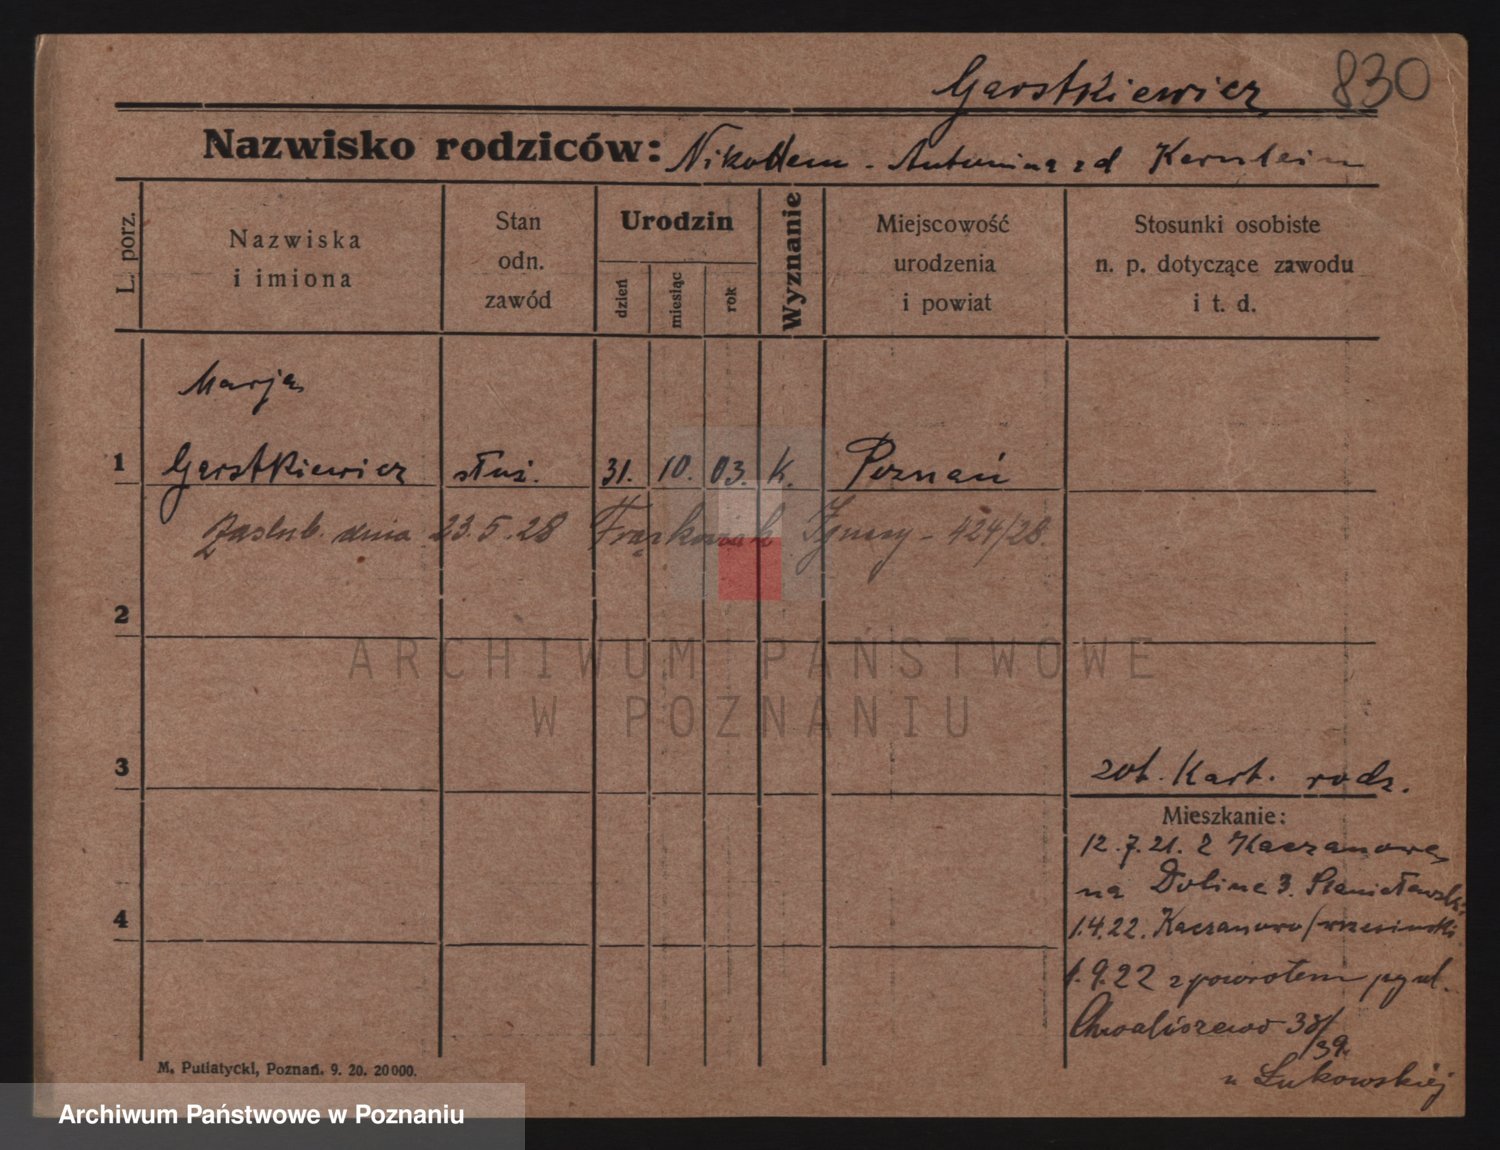 Garstkiewicz 830
Nazwisko rodziców: Nikodem - Antonina zd
L. porz.
Nazwiska
i imiona
Stan
odn.
zawód
Urodzin
dzień
miesiąc
rok
Wyznanie
Miejscowość
urodzenia
i powiat
Stosunki osobiste
n. p. dotyczące zawodu
i t. d.
Marja
1 Garstkiewicz służ. 31. 10. 03. K. Poznań
Zaslub. dnia 23.5.28 Frąskowiak Ignacy - 424/28.
2
ARCHIWUM PAŃSTWOWE
W POZNANIU
3
zob. Kart. rodz.
Mieszkanie:
12.7.21. z Kaczanowa
na Dolinę 3. Stanisławski
4
1.4.22. Kaczanowo/wrzesiński
1.9.22 zpowrotem
Chwaliszewo 38/
39.
u Łukowskiej
M. Putiatycki, Poznań. 9. 20. 20000.
Archiwum Państwowe w Poznaniu